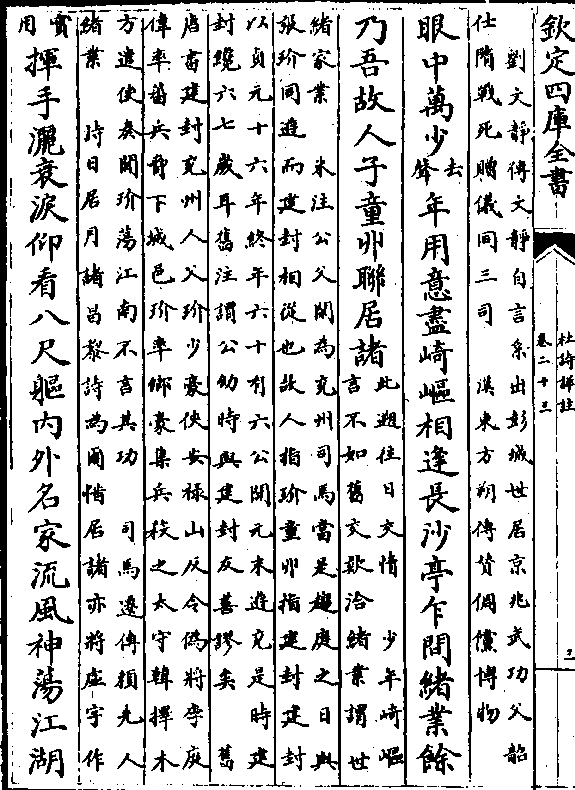 欽定四庫全書
杜詩詳註
卷二十三
三
劉文靜傳文靜自言系出彭城世居京兆武功父韶
仕隋戰死贈儀同三司 漢東方朔傳贊倜儻博物
眼中萬少去聲年用意盡崎嶇相逢長沙亭乍問緒業餘
乃吾故人子童丱聯居諸
此遡往日交情 少年崎嶇
言不如舊交歡洽緒業謂世
緒家業 朱注公父閑為兗州司馬當是趨庭之日與
張玠同遊而建封相從也故人指玠童丱指建封建封
以貞元十六年終年六十有六公開元末遊兗是時建
封纔六七歲耳舊注謂公幼時與建封友善謬矣 舊
唐書建封兗州人父玠少豪俠安祿山反令偽將李庭
偉率蕃兵脅下城邑玠率鄉豪集兵殺之太守韓擇木
方遣使奏聞玠蕩江南不言其功 司馬遷傳頗先人
緒業 詩日居月諸昌黎詩為爾惜居諸亦將虛字作
實用
揮手灑衰淚仰看八尺軀內外名家流風神蕩江湖